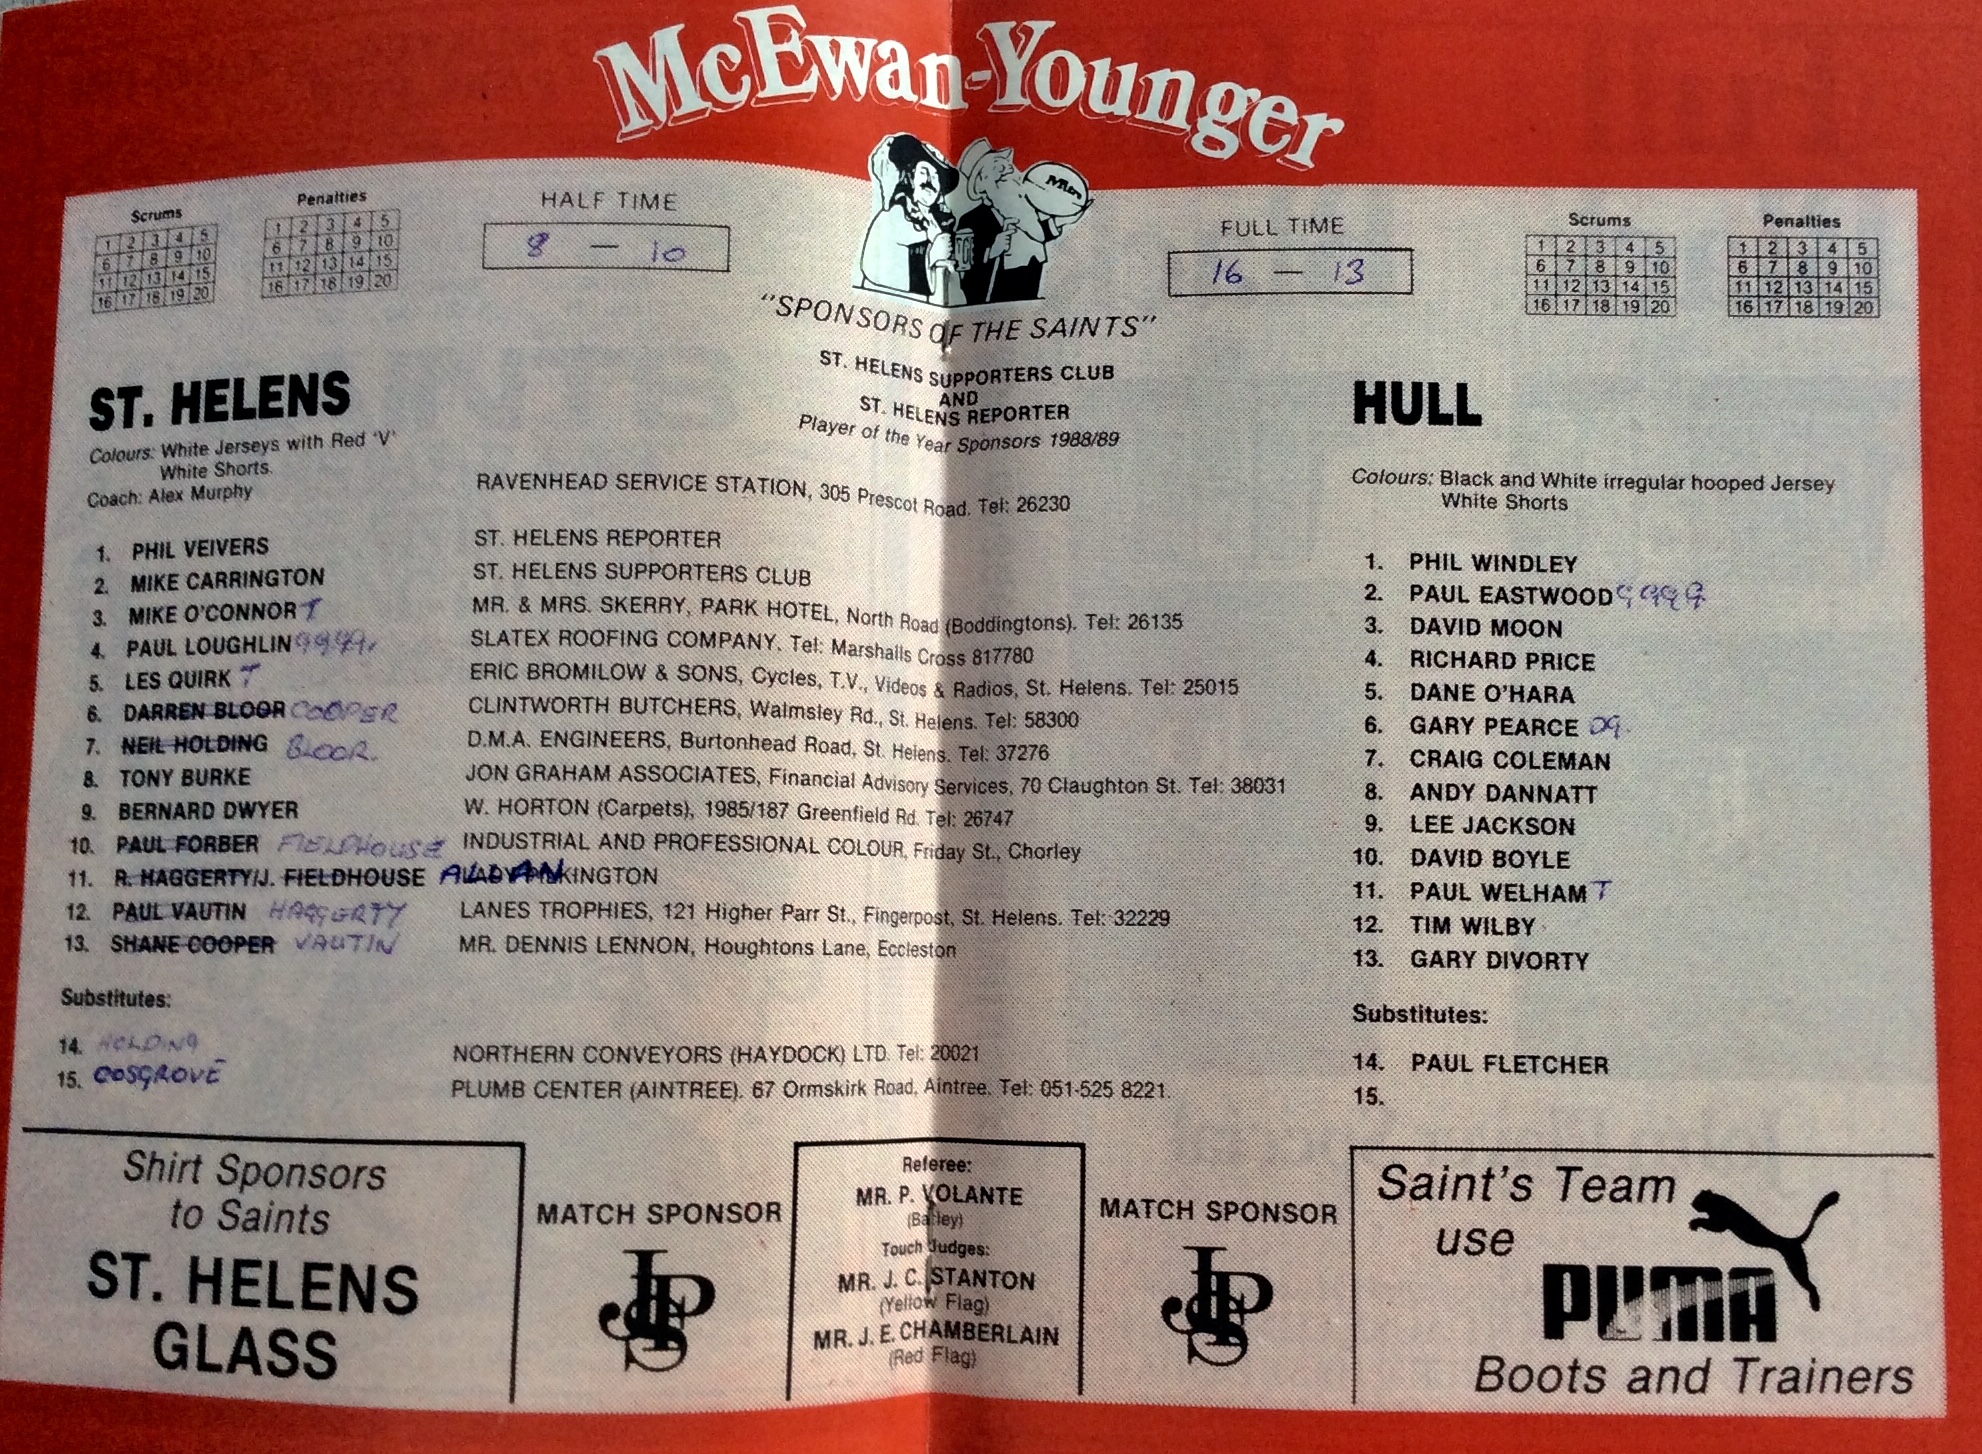 McEwan-Younger
Scrums
1 2 3 4 5
6 7 8 9 10
11 12 13 14 15
16 17 18 19 20
Penalties
1 2 3 4 5
6 7 8 9 10
11 12 13 14 15
16 17 18 19 20
HALF TIME
8 — 10
Mitre
"SPONSORS OF THE SAINTS"
FULL TIME
16 — 13
Scrums
1 2 3 4 5
6 7 8 9 10
11 12 13 14 15
16 17 18 19 20
Penalties
1 2 3 4 5
6 7 8 9 10
11 12 13 14 15
16 17 18 19 20
ST. HELENS SUPPORTERS CLUB
AND
ST. HELENS REPORTER
Player of the Year Sponsors 1988/89
ST. HELENS
Colours: White Jerseys with Red 'V'
White Shorts.
Coach: Alex Murphy
RAVENHEAD SERVICE STATION, 305 Prescot Road. Tel: 26230
1. PHIL VEIVERS ST. HELENS REPORTER
2. MIKE CARRINGTON ST. HELENS SUPPORTERS CLUB
3. MIKE O'CONNOR T MR. & MRS. SKERRY, PARK HOTEL, North Road (Boddingtons). Tel: 26135
4. PAUL LOUGHLIN SLATEX ROOFING COMPANY. Tel: Marshalls Cross 817780
5. LES QUIRK T ERIC BROMILOW & SONS, Cycles, T.V., Videos & Radios, St. Helens. Tel: 25015
6. DARREN BLOOR COOPER CLINTWORTH BUTCHERS, Walmsley Rd., St. Helens. Tel: 58300
7. NEIL HOLDING BLOOR. D.M.A. ENGINEERS, Burtonhead Road, St. Helens. Tel: 37276
8. TONY BURKE JON GRAHAM ASSOCIATES, Financial Advisory Services, 70 Claughton St. Tel: 38031
9. BERNARD DWYER W. HORTON (Carpets), 1985/187 Greenfield Rd. Tel: 26747
10. PAUL FORBER FIELDHOUSE INDUSTRIAL AND PROFESSIONAL COLOUR, Friday St., Chorley
11. R. HAGGERTY/J. FIELDHOUSE ALLAN
12. PAUL VAUTIN HAGGERTY LANES TROPHIES, 121 Higher Parr St., Fingerpost, St. Helens. Tel: 32229
13. SHANE COOPER VAUTIN MR. DENNIS LENNON, Houghtons Lane, Eccleston
Substitutes:
14. HOLDING NORTHERN CONVEYORS (HAYDOCK) LTD. Tel: 20021
15. COSGROVE PLUMB CENTER (AINTREE). 67 Ormskirk Road, Aintree. Tel: 051-525 8221.
HULL
Colours: Black and White irregular hooped Jersey
White Shorts
1. PHIL WINDLEY
2. PAUL EASTWOOD
3. DAVID MOON
4. RICHARD PRICE
5. DANE O'HARA
6. GARY PEARCE DG.
7. CRAIG COLEMAN
8. ANDY DANNATT
9. LEE JACKSON
10. DAVID BOYLE
11. PAUL WELHAM T
12. TIM WILBY
13. GARY DIVORTY
Substitutes:
14. PAUL FLETCHER
15.
Shirt Sponsors
to Saints
ST. HELENS
GLASS
MATCH SPONSOR
JPS
Referee:
MR. P. VOLANTE
(Batley)
Touch Judges:
MR. J. C. STANTON
(Yellow Flag)
MR. J. E. CHAMBERLAIN
(Red Flag)
MATCH SPONSOR
JPS
Saint's Team
use
PUMA
Boots and Trainers